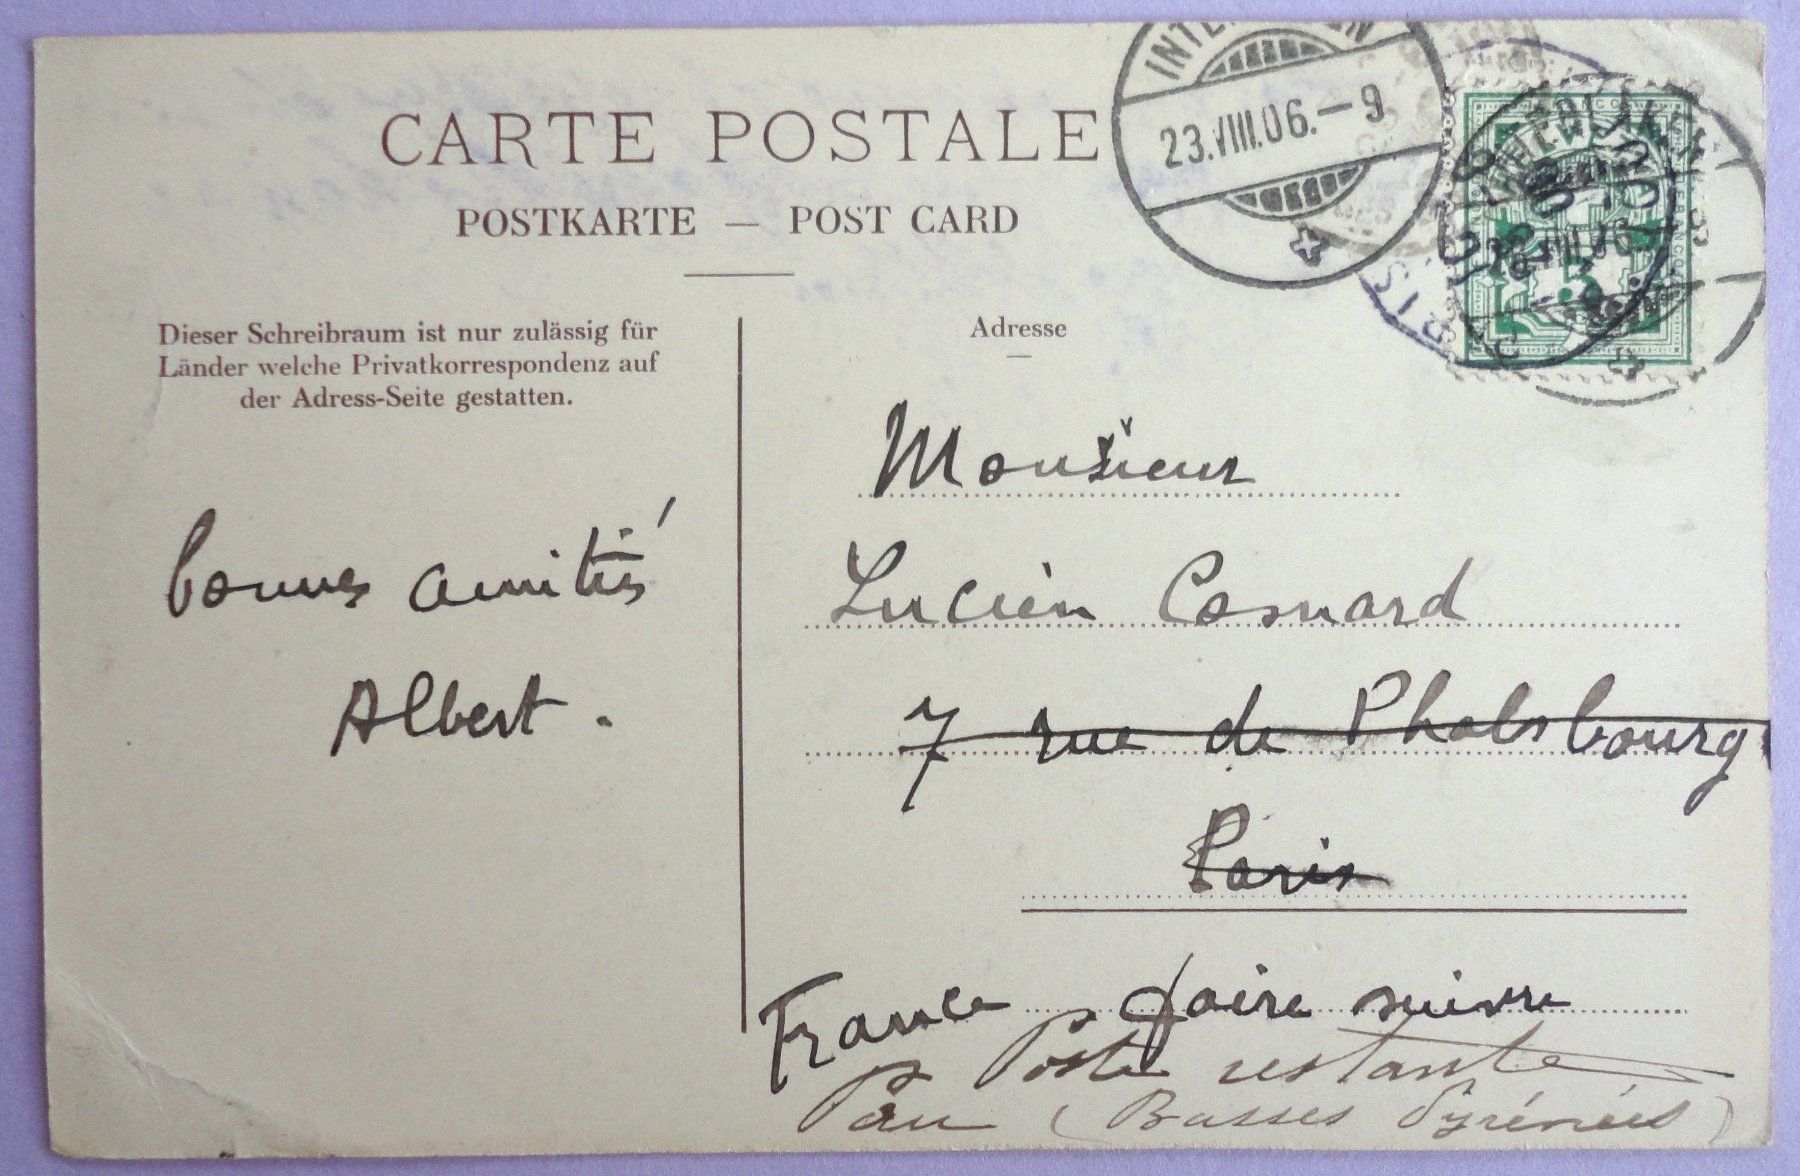 CARTE POSTALE
POSTKARTE — POST CARD
INTERLAKEN
23.VIII.06.—9
Dieser Schreibraum ist nur zulässig für
Länder welche Privatkorrespondenz auf
der Adress-Seite gestatten.
bonnes amitiés
Albert.
Adresse
Monsieur
Lucien Cosnard
7 rue de Phalsbourg
Paris
France faire suivre
Poste restante
Pau (Basses Pyrénées)